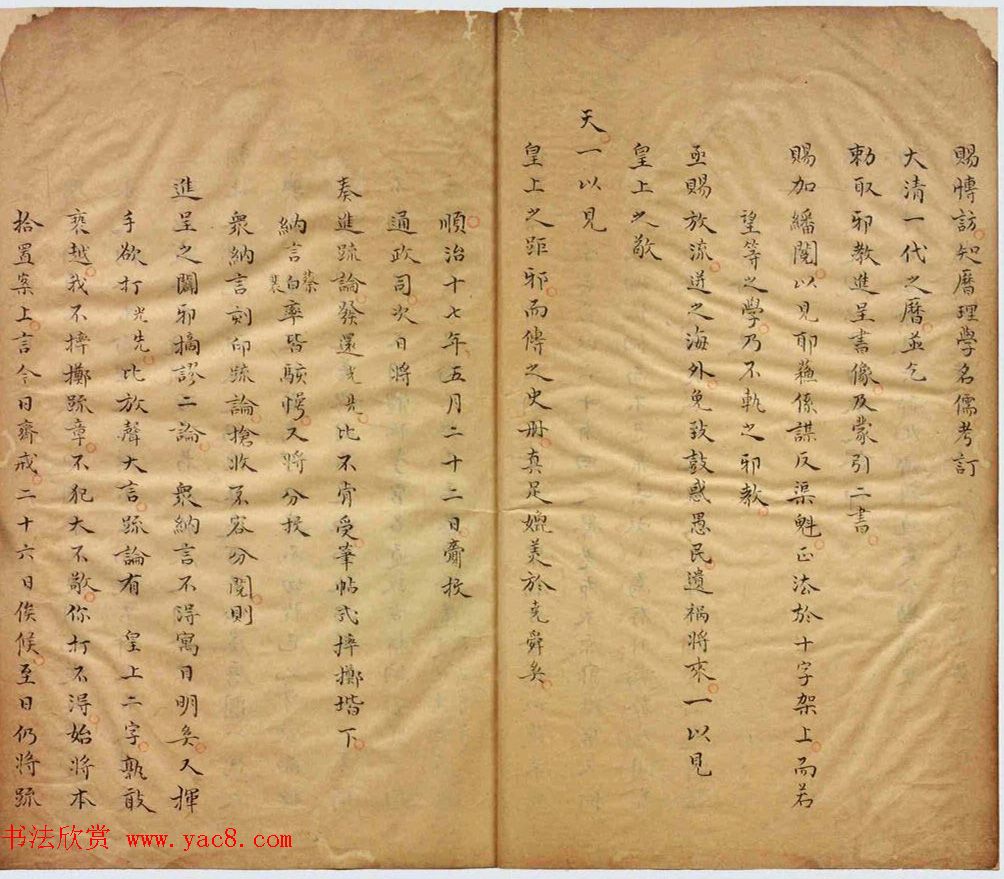 賜博訪知曆理學名儒考訂
大清一代之曆並乞
勅取邪教進呈書像及蒙引二書
賜加繙閱以見耶蘇係謀反渠魁正法於十字架上而若
望等之學乃不軌之邪教
亟賜放流迸之海外免致鼓惑愚民遺禍將來一以見
皇上之敬
天一以見
皇上之距邪而傳之史册真足媲美於堯舜矣
順治十七年五月二十二日齎投
通政司次日將
奏進疏論發還光先比不肯受筆帖式摔擲堦下
納言率皆駭愕又將分投
衆納言刻印疏論搶收不容分閱則
進呈之闢邪摘謬二論衆納言不得寓目明矣又揮
手欲打光先比放聲大言疏論有皇上二字孰敢
褻越我不摔擲疏章不犯大不敬你打不得始將本
拾置案上言今日齊戒二十六日俟候至日仍將疏
书法欣赏 www.yac8.com